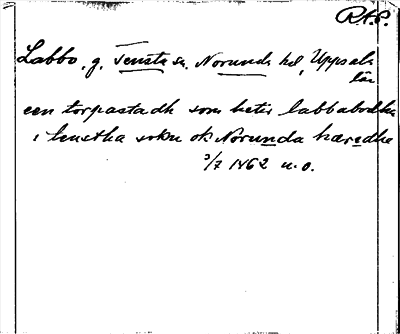 R.A.P.
Labbo, g. Tensta sn. Norunda hd, Uppsala
län
een torpastadh som heter labbabodha
i tenstha sokn ok Norunda hæredhe
3/7 1462 u.o.